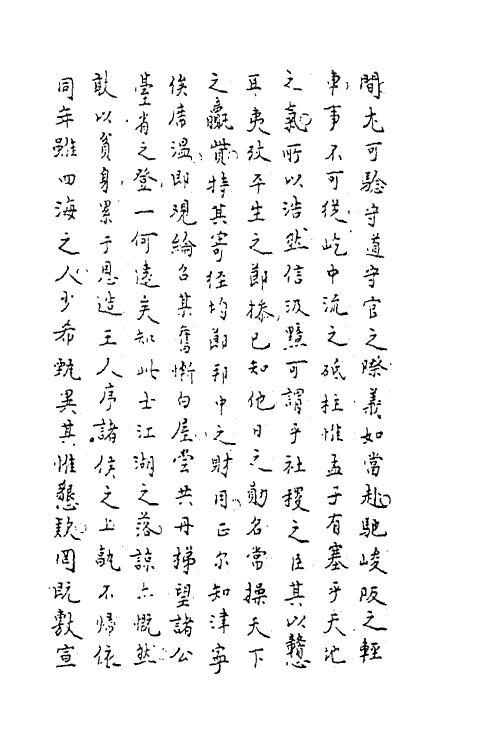 間尤可驗守道守官之際義如當赴馳峻阪之輕
車事不可從屹中流之砥柱惟孟子有塞乎天地
之氣所以浩然信汲黯可謂乎社稷之臣其以戇
耳夷攷平生之節槩已知他日之勛名常操天下
之贏貲特其寄徑均節邦中之財用正尔知津寧
俟席温即觀綸召某舊慚白屋甞共丹梯望諸公
臺省之登一何遠矣知此士江湖之落諒亦慨然
敢以貧身累于恩造王人序諸侯之上孰不歸依
同年雖四海之人少希甄異其惟懇欵罔既敷宣